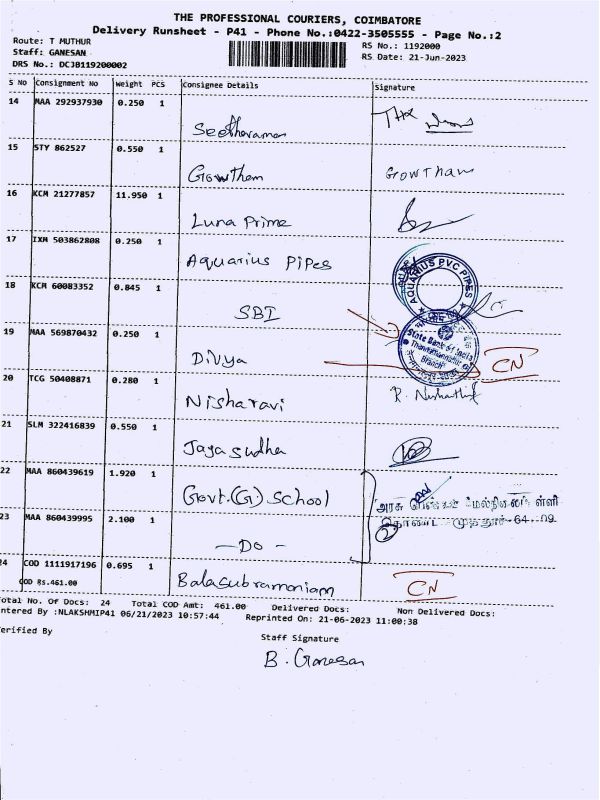 THE PROFESSIONAL COURIERS, COIMBATORE
Delivery Runsheet - P41 - Phone No.:0422-3505555 - Page No.:2
Route: T MUTHUR
RS No.: 1192000
Staff: GANESAN
RS Date: 21-Jun-2023
DRS No.: DCJB119200002
S NO Consignment No Weight PCS Consignee Details Signature
14 MAA 292937930 0.250 1
Seetharaman
15 STY 862527 0.550 1
Gowthem Gowtham
16 KCM 21277857 11.950 1
Luna Prime
17 IXM 503862808 0.250 1
Aquarius Pipes
AQUARIUS PVC PIPES
18 KCM 60083352 0.845 1
SBI
State Bank of India
Branch
19 MAA 569870432 0.250 1
Divya CN
20 TCG 50408871 0.280 1
Nisharavi
21 SLM 322416839 0.550 1
Jayasudha
22 MAA 860439619 1.920 1
Govt.(G) School
அரசு
23 MAA 860439995 2.100 1
2
- Do -
24 COD 1111917196 0.695 1
COD Rs.461.00
Balasubramaniam CN
Total No. Of Docs: 24 Total COD Amt: 461.00 Delivered Docs: Non Delivered Docs:
ntered By :NLAKSHMIP41 06/21/2023 10:57:44 Reprinted On: 21-06-2023 11:00:38
erified By
Staff Signature
B. Ganesan